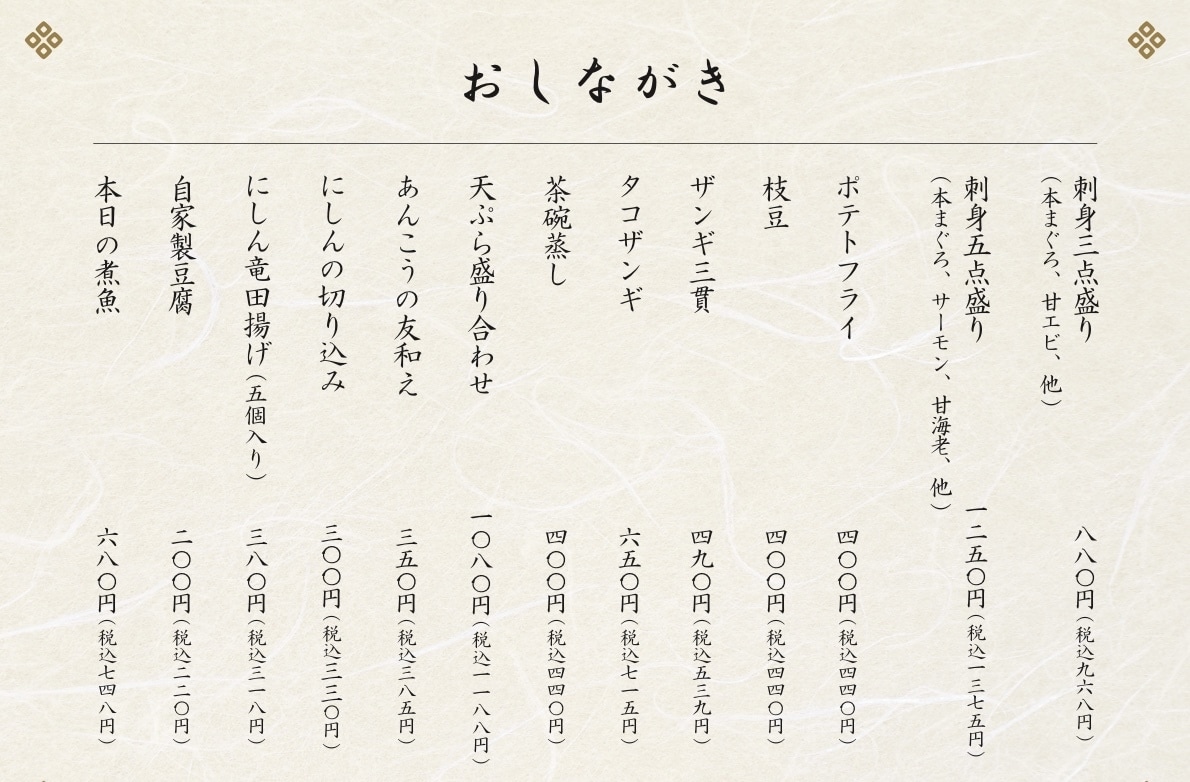 おしながき
刺身三点盛り 八八〇円（税込九六八円）
（本まぐろ、甘エビ、他）
刺身五点盛り 一二五〇円（税込一三七五円）
（本まぐろ、サーモン、甘海老、他）
ポテトフライ 四〇〇円（税込四四〇円）
枝豆 四〇〇円（税込四四〇円）
ザンギ三貫 四九〇円（税込五三九円）
タコザンギ 六五〇円（税込七一五円）
茶碗蒸し 四〇〇円（税込四四〇円）
天ぷら盛り合わせ 一〇八〇円（税込一一八八円）
あんこうの友和え 三五〇円（税込三八五円）
にしんの切り込み 三〇〇円（税込三三〇円）
にしん竜田揚げ（五個入り） 三八〇円（税込三一八円）
自家製豆腐 二〇〇円（税込二二〇円）
本日の煮魚 六八〇円（税込七四八円）